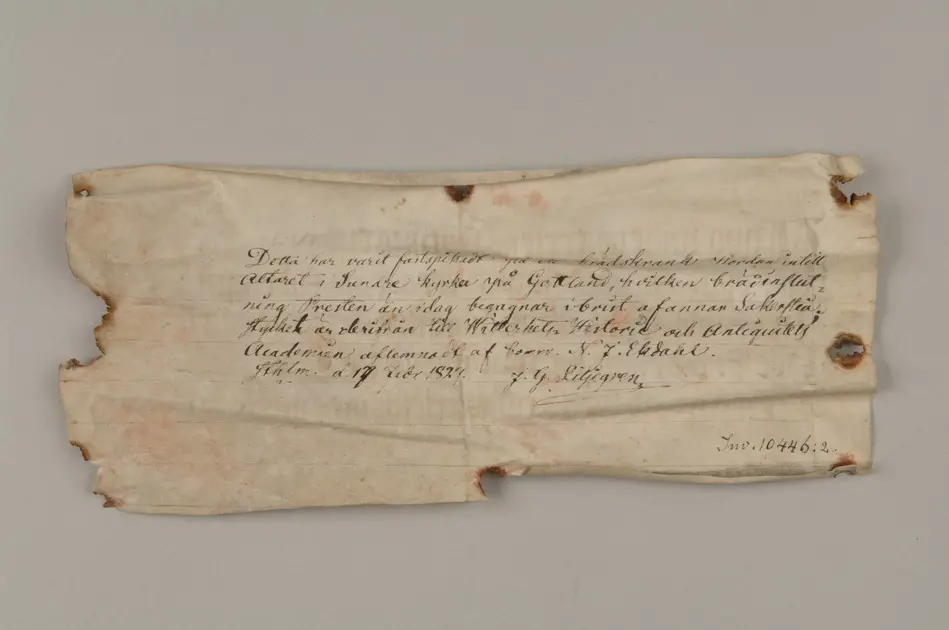 Detta har varit fastspikadt på en brädskrank Nordan intill
Altaret i Sundre kyrka på Gottland, hvilken brädinslut=
ning Presten än idag begagnar i brist af annan Sakerstia.
Stycket är därifrån till Witterhets Historie och Antiquitets
Academien aflemnadt af Comm. N. J. Ekdahl.
Sthlm. d. 17 1827. J. G. Liljegren
Inv. 10446:2.